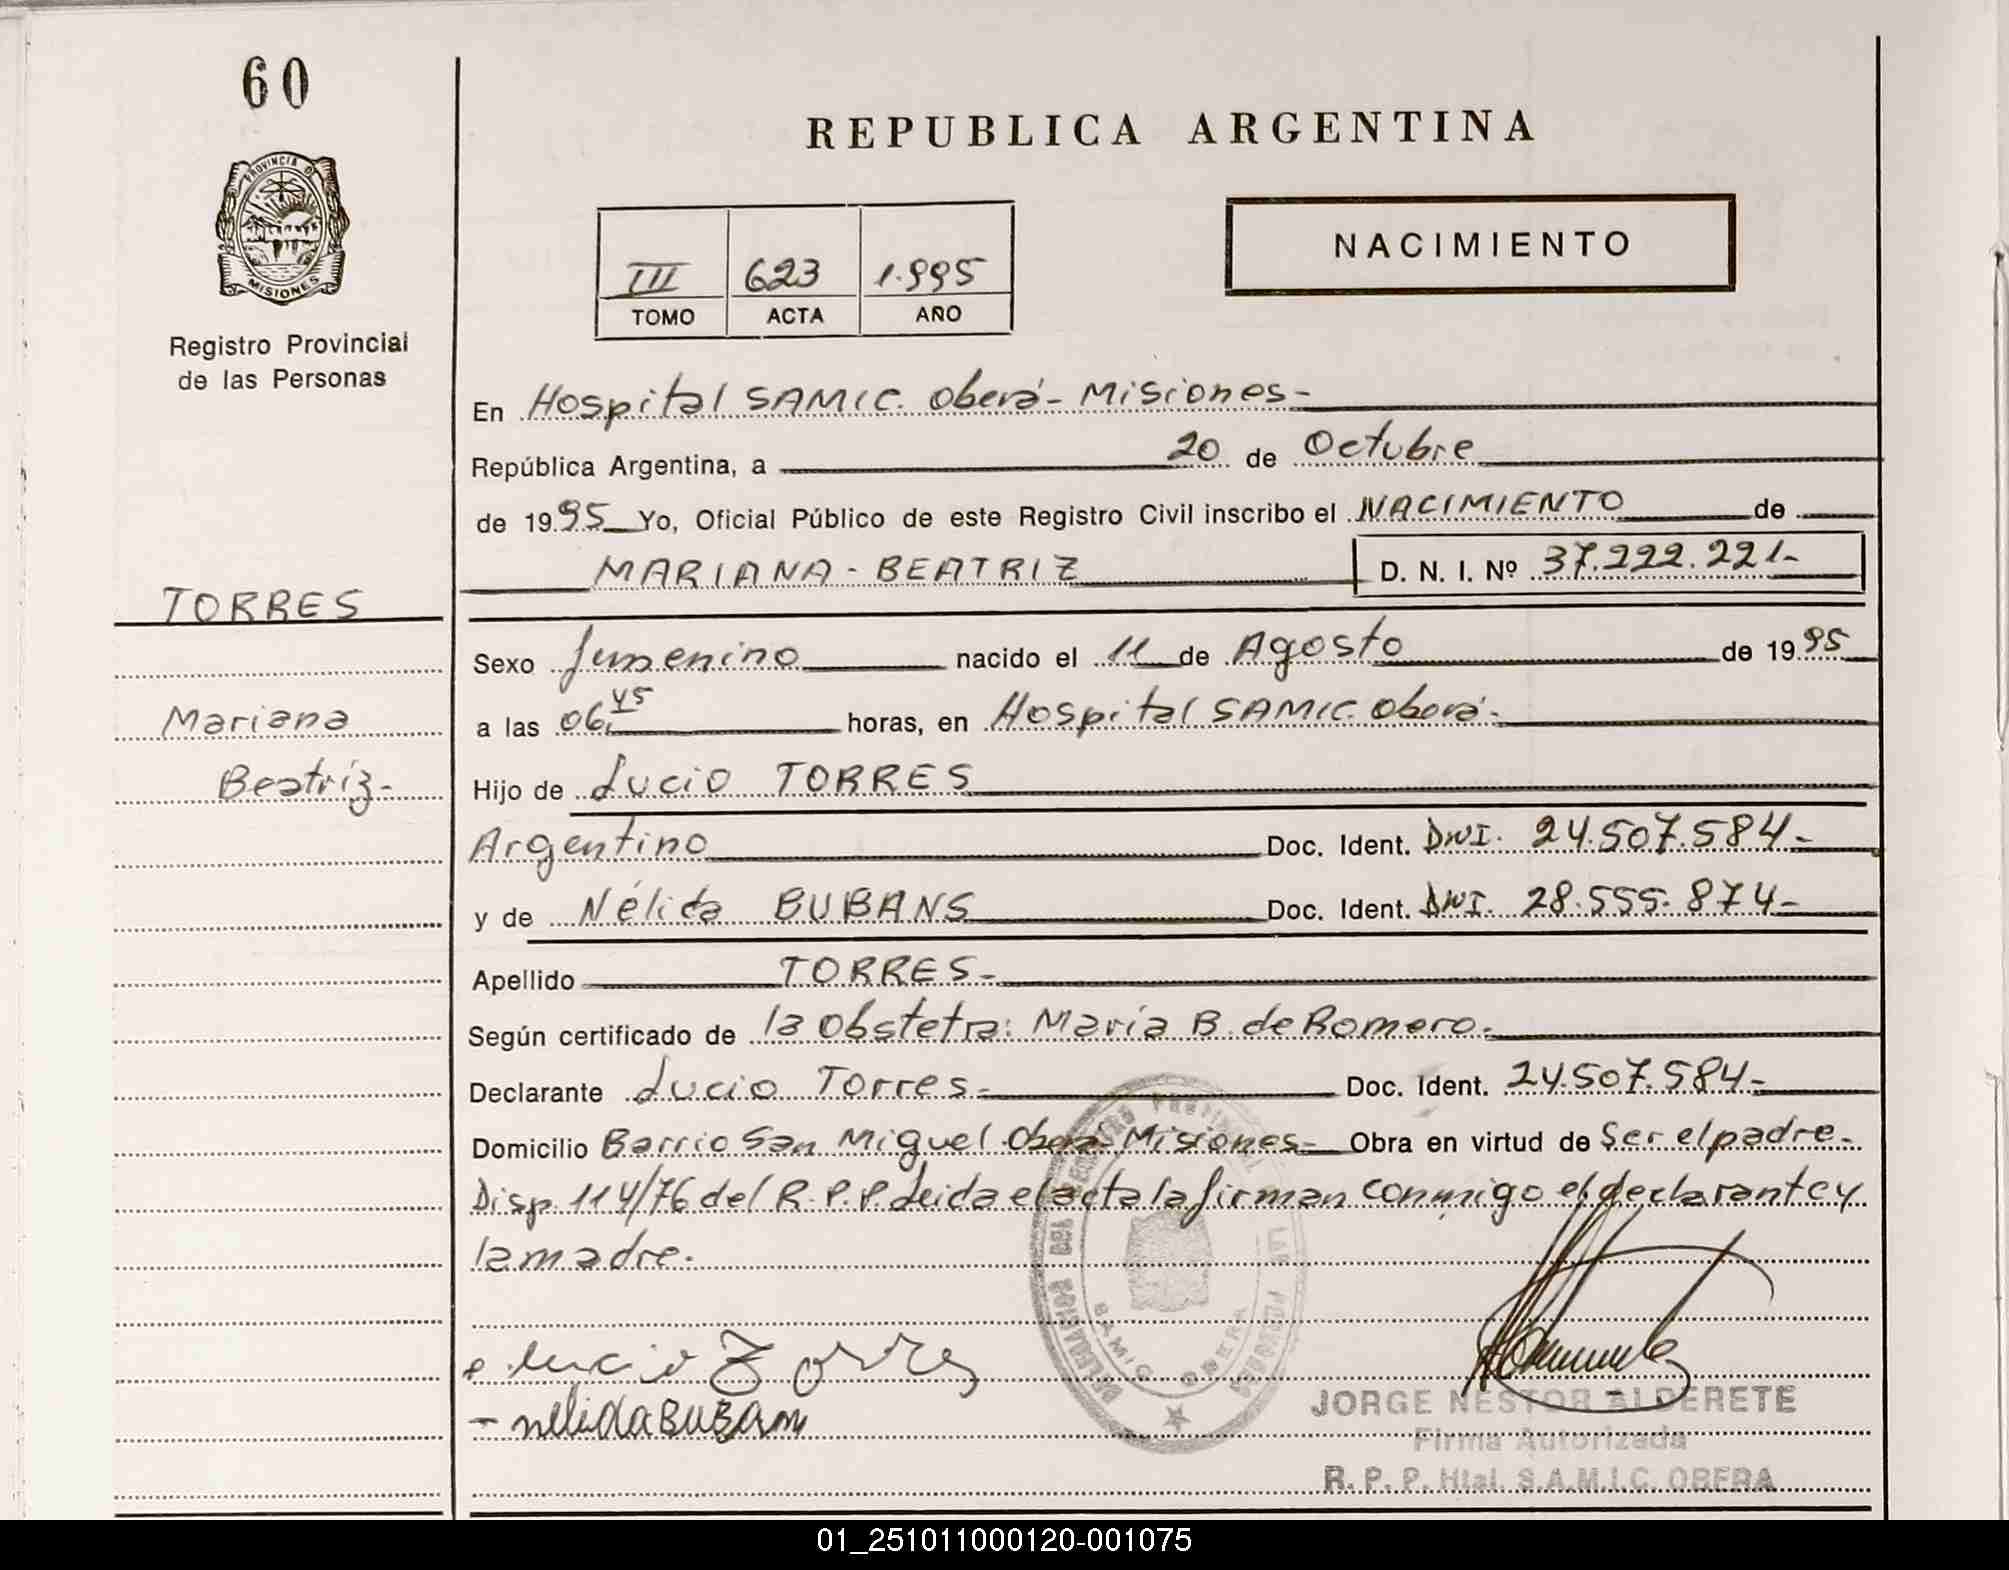 60
REPUBLICA ARGENTINA
PROVINCIA DE
MISIONES
Registro Provincial
de las Personas
III 623 1.995
TOMO ACTA AÑO
NACIMIENTO
En Hospital SAMIC. Oberá - Misiones-
República Argentina, a 20 de Octubre
de 1995 Yo, Oficial Público de este Registro Civil inscribo el NACIMIENTO de
MARIANA - BEATRIZ D. N. I. Nº 37.222.221-
TORRES
Mariana
Beatriz-
Sexo femenino nacido el 11 de Agosto de 1995
a las 06,45 horas, en Hospital SAMIC. Oberá-
Hijo de Lucio TORRES
Argentino Doc. Ident. DNI. 24.507.584-
y de Nélida BUBANS Doc. Ident. DNI. 28.555.874-
Apellido TORRES-
Según certificado de la Obstetra: María B. de Romero-
Declarante Lucio Torres- Doc. Ident. 24.507.584-
Domicilio Barrio San Miguel. Oberá Misiones- Obra en virtud de Ser el padre-
Disp. 114/76 del R.P.P. Leida el acta la firman conmigo el declarante y
la madre.
Lucio Torres
- nelida BUBANS
DELEGACION DEL REGISTRO PROVINCIAL DE LAS PERSONAS
SAMIC OBERA
JORGE NESTOR ALDERETE
Firma Autorizada
R. P. P. Htal. S.A.M.I.C. OBERA
01_251011000120-001075